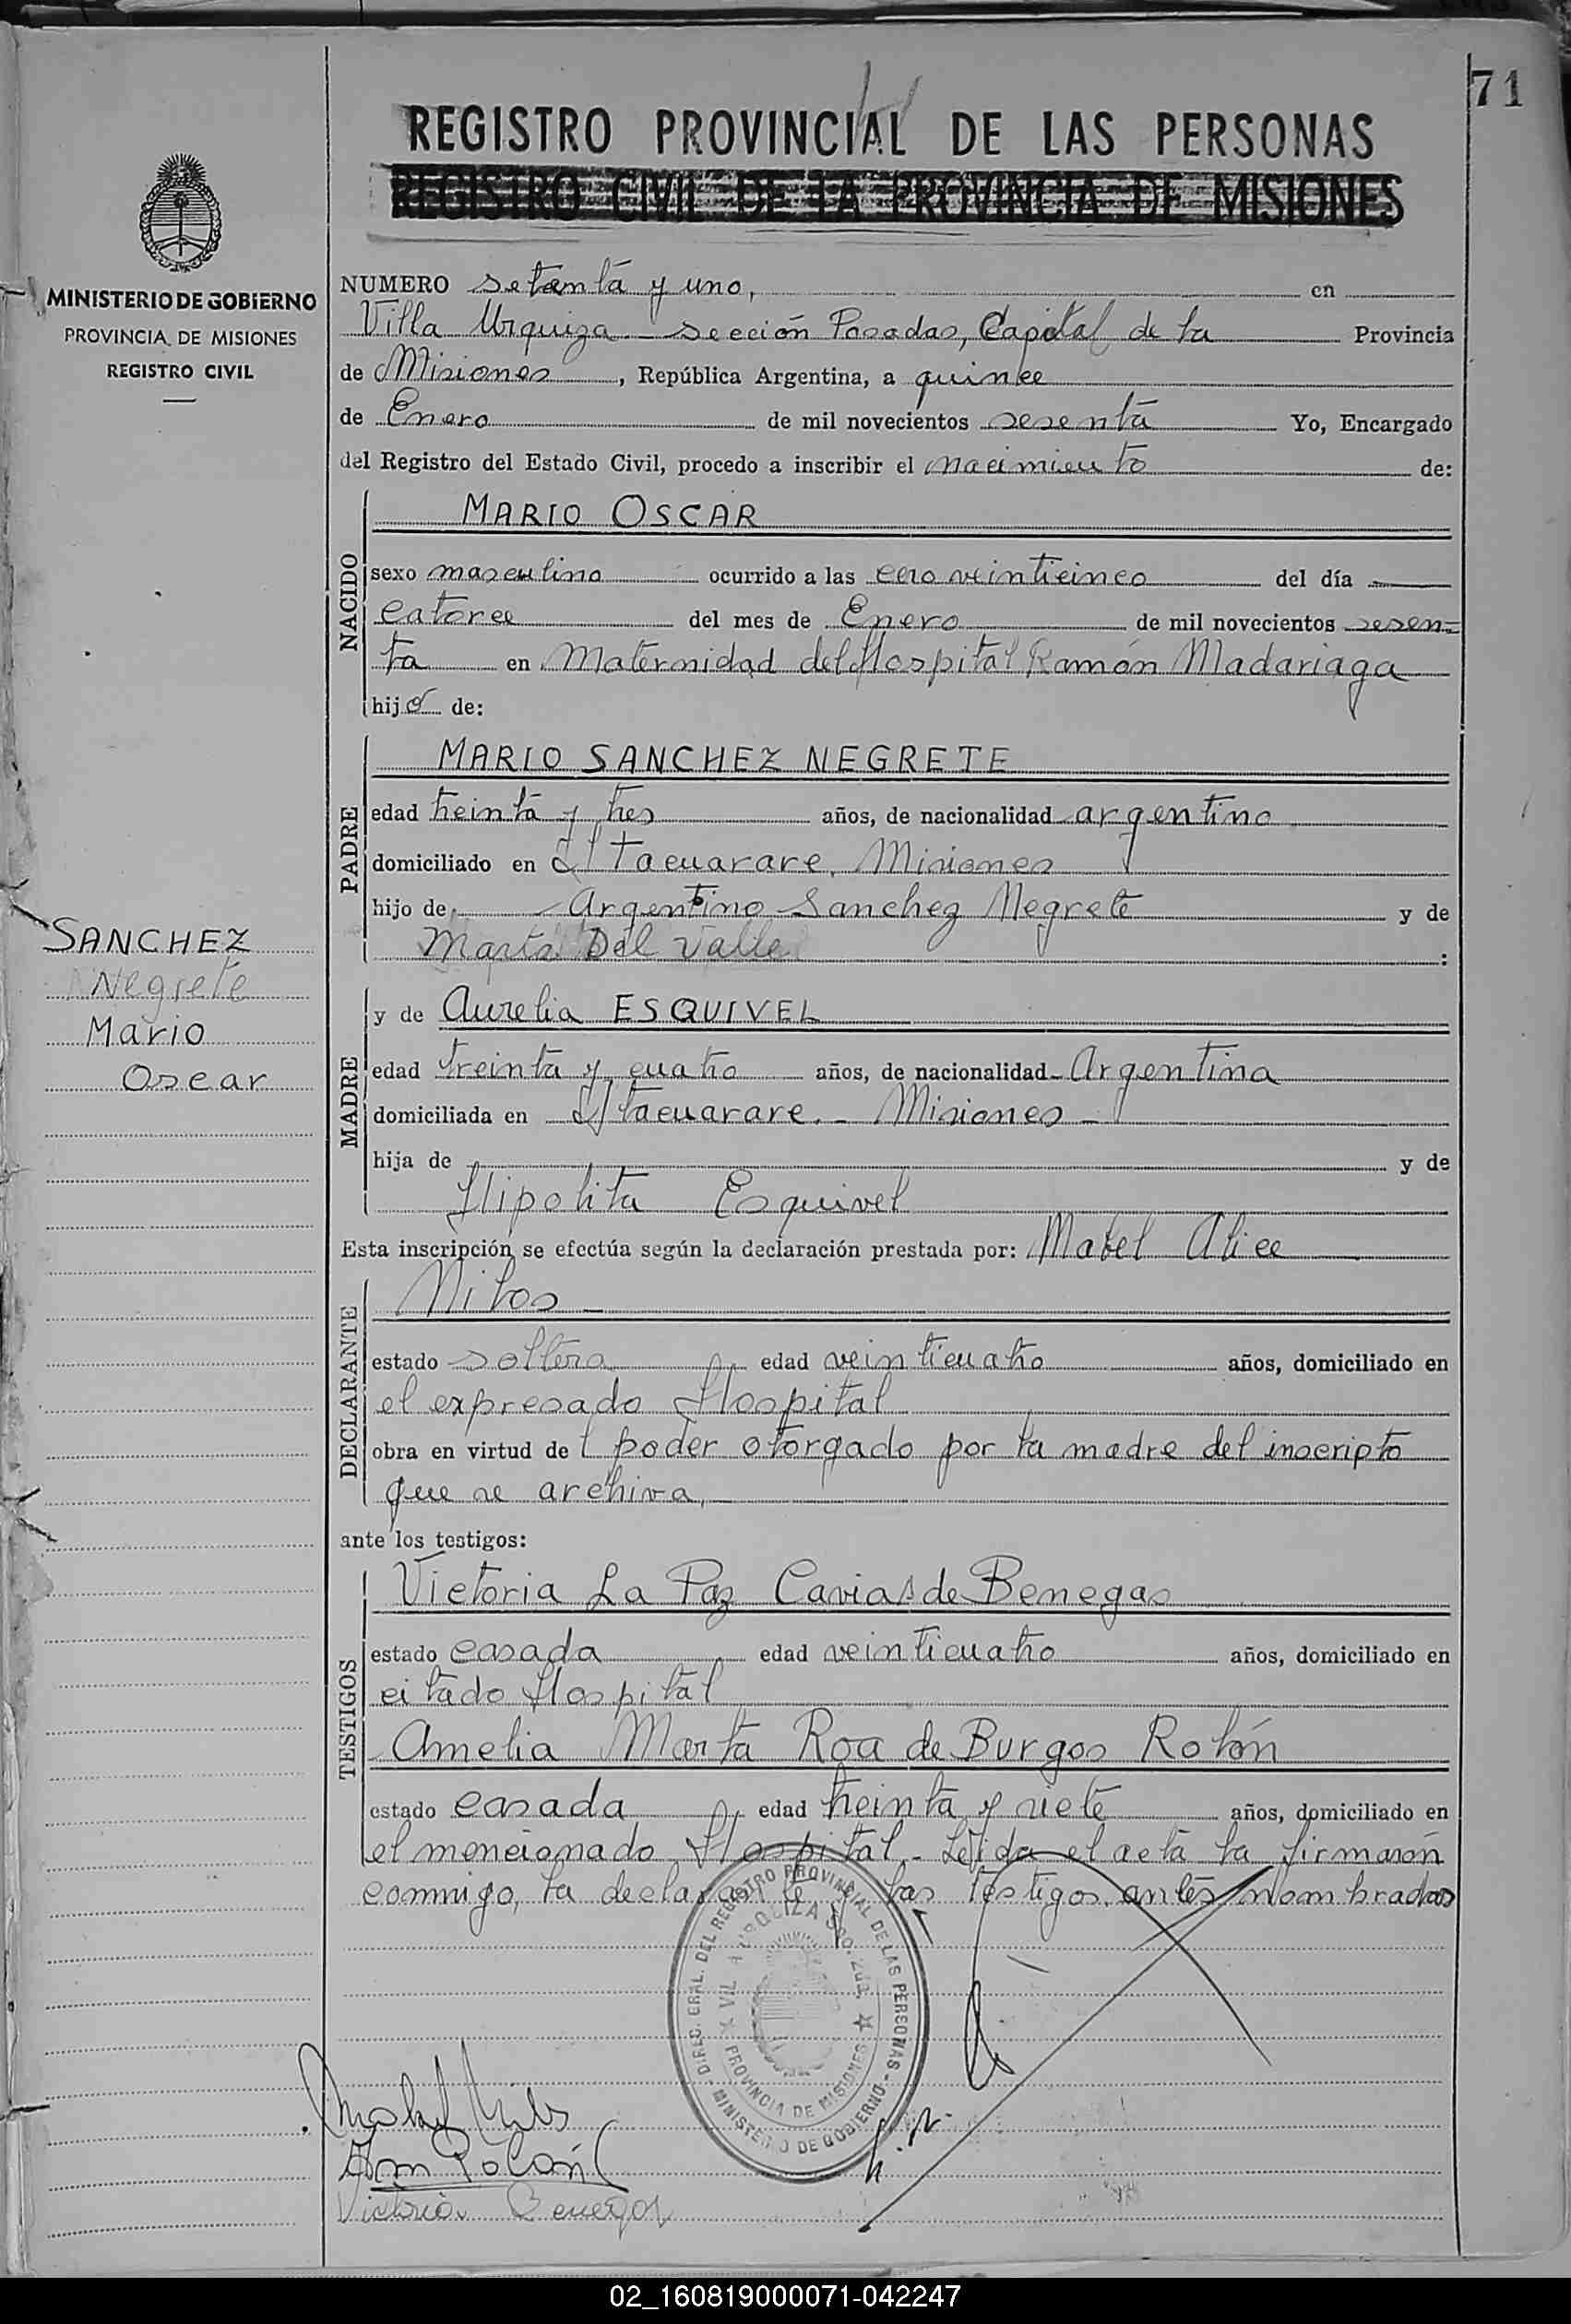 71
REGISTRO PROVINCIAL DE LAS PERSONAS
REGISTRO CIVIL DE LA PROVINCIA DE MISIONES
MINISTERIO DE GOBIERNO
PROVINCIA DE MISIONES
REGISTRO CIVIL
NUMERO setenta y uno, en
Villa Urquiza - sección Posadas, Capital de la Provincia
de Misiones, República Argentina, a quince
de Enero de mil novecientos sesenta Yo, Encargado
del Registro del Estado Civil, procedo a inscribir el nacimiento de:
NACIDO
MARIO OSCAR
sexo masculino ocurrido a las cero veinticinco del día
catorce del mes de Enero de mil novecientos sesen=
ta en Maternidad del Hospital Ramón Madariaga
hijo de:
PADRE
MARIO SANCHEZ NEGRETE
edad treinta y tres años, de nacionalidad argentino
domiciliado en Itacuarare. Misiones
hijo de Argentino Sanchez Negrete y de
Marta Del Valle :
SANCHEZ
Negrete
Mario
Oscar
MADRE
y de Aurelia ESQUIVEL
edad treinta y cuatro años, de nacionalidad Argentina
domiciliada en Itacuarare. - Misiones -
hija de y de
Hipolita Esquivel
Esta inscripción se efectúa según la declaración prestada por: Mabel Alice
DECLARANTE
Milos
estado soltera edad veinticuatro años, domiciliado en
el expresado Hospital
obra en virtud del poder otorgado por la madre del inscripto
que se archiva,
ante los testigos:
TESTIGOS
Victoria La Paz Carias de Benegas
estado casada edad veinticuatro años, domiciliado en
citado Hospital
Amelia Marta Roa de Burgos Rolón
estado casada edad treinta y siete años, domiciliado en
el mencionado Hospital - Leída el acta la firmaron
conmigo, la declarante y las testigos antes nombradas
DIREC. GRAL. DEL REGISTRO PROVINCIAL DE LAS PERSONAS
MINISTERIO DE GOBIERNO
PROVINCIA DE MISIONES
Mabel Milos
Rolón
Victoria Benegas
02_160819000071-042247